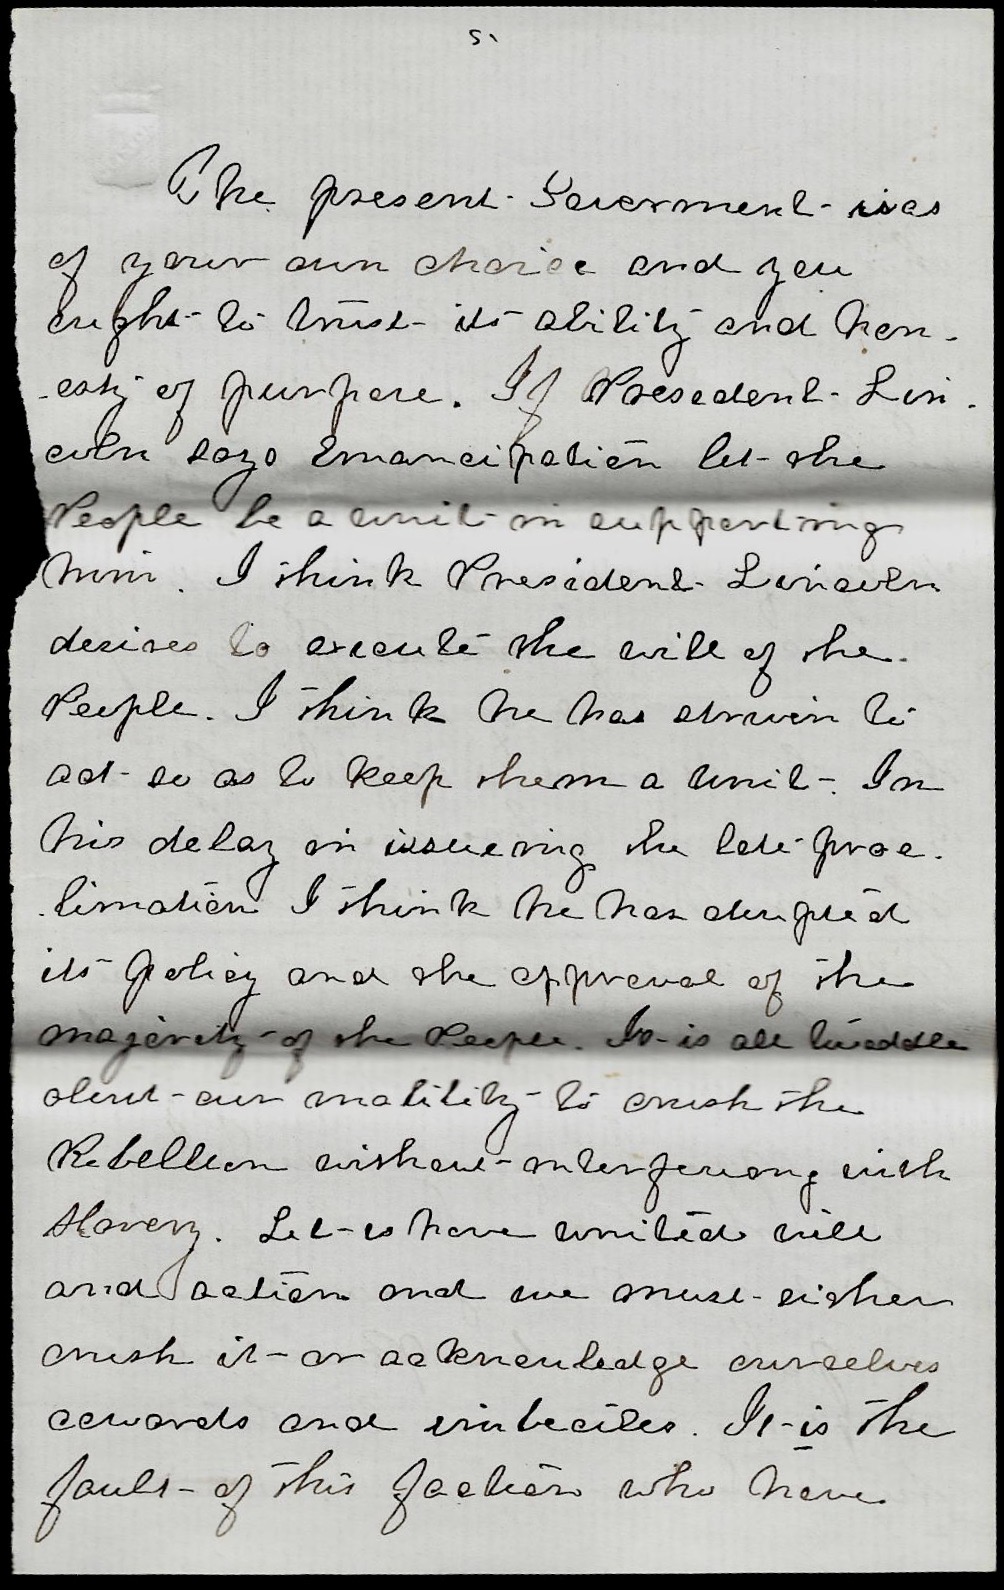 5.
The present Goverment was
of your own choice and you
ought to trust its ability and hon-
-esty of purpose. If Presedent Lin-
coln says Emancipation let the
People be a unit in supporting
him. I think President Lincoln
desires to execute the will of the
People. I think he has striven to
act so as to keep them a unit. In
his delay in issueing the late proc-
-limation I think he has adopted
its policy and the approval of the
majority of the People. It is all twaddle
about our inability to crush the
Rebellion without interfering with
Slavery. Let us have united will
and action and we must either
crush it or acknowledge ourselves
cowards and imbeciles. It is the
fault of this faction who have